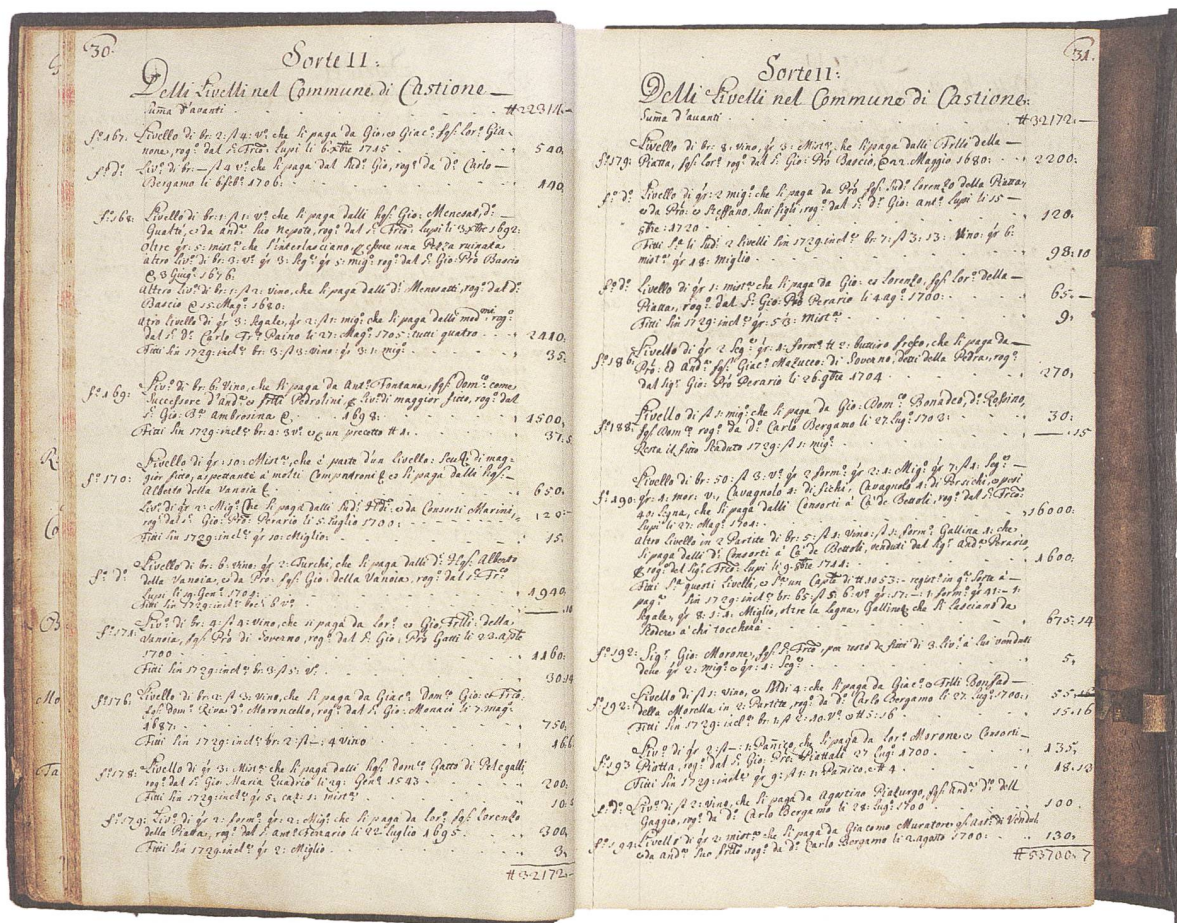 30.
Sorte II:
Delli Livelli nel Commune di Castione
Suma d'avanti #22314
fo. 167. Livello di br: 2: st 4: vo. che si paga da Gio: e Giaco. fqs. Loro. Gianone, rogo. dal S. Frco. Lupi li 6 xbre 1715 540.
fo. do. Livo. di br: — st 4 vo. che si paga dal sud. Gio, rogo. da Do. Carlo
Bergamo li 6 febo. 1706: 440.
fo. 168: Livello di br: 1: st 1: vo. che si paga dalli hqs. Gio: Menesat, do.
Guatto, e da Ando. suo Nepote, rogo. dal S. Frco. Lupi li 3 xbre 1692:
Oltre qr: 5: misto. che s'interlasciano, essere una Pezza ruinata.
altro Livo. di br: 3: vo. qr 3: Sego. qr 5: migo. rogo. dal S. Gio: Pro Bascio
3 Giugo. 1676.
Altro Livo. di br: 1: st 2: vino, che si paga dalli do. Menesatti, rogo. dal do.
Bascio 15 Mago. 1680:
Atro Livello di qr 3: segale, qr 2: st 1: migo. che si paga delli medmi, rogo.
dal S. Do. Carlo Fro. Paino li 27: Mago. 1705: tutti quatro 2410.
Fitti sin 1729: inclo. br: 3: st 3: vino: qr 3: 1: migo. 35.
fo. 169: Livo. di br: 6: vino, che si paga da Anto. Fontana, fqs. Domo. come
Successore d'Ando. e frlli Pedrolini, Livo. di maggior fitto, rogo. dal
S. Gio: Bta. Ambrosina 1698: 1500.
Fitti sin 1729: inclo. br: 4: 3 vo. e un precetto # 1. 37.5
fo. 170: Livello di qr: 10: Misto., che è parte d'un Livello: di maggior fitto, aspettanti à molti Compadroni e si paga dalli hqs.
Alberto della Vanoia 650.
Livo. di qr 2: Migo. che si paga dalli sud. e da Consorti Marini,
rogo. dal S. Gio: Pro: Perario li 5 Luglio 1700: 120
Fitti sin 1729: inclo. qr 10: Miglio: 15.
fo. do. Livello di br: 6: vino: qr 2: Furchi, che si paga dalli do. Hqs. Alberto
della Vanoia, e da Pro. fqs. Gio: della Vanoia, rogo. dal S. Frco.
Lupi li 19 Geno. 1704. 1940.
Fitti sin 1729: inclo. br: 6 vo. 10
fo. 171. Livo. di br: 4: st 4: vino, che si paga da Loro. e Gio: Frlli: della
Vanoia, fqs. Pro di Soverno, rogo. dal S. Gio: Pro Gatti li 23
1700 1160.
Fitti sin 1729: inclo. br: 3: st 5: vo. 30:14
fo. 176: Livello di br: 2: st 3: vino, che si paga da Giaco. Domo. Gio: e Frco.
fqs: domo. Riva do. Moroncello, rogo. dal S. Gio: Monaci li 7 mago.
1687. 750.
Fitti sin 1729: inclo. br: 2: st —: 4 vino 16.6
fo. 178: Livello di qr 3: Misto. che si paga dalli hqs. domo. Gatto di Potegalli,
rogo. dal S. Gio: Maria Quadrio li 29: Geno. 1543 200.
Fitti sin 1729: inclo. qr 5: 1: misto.
fo. 179: Livo. di qr 2: formo. qr 2: Migo. che si paga da Loro. fqs. Lorenzo
della Piatta, rogo. dal S. Anto. Ferrario li 22 Luglio 1695. 300.
Fitti sin 1729 inclo. qr 2: Miglio 3.
#32172
31.
Sorte II:
Delli Livelli nel Commune di Castione:
Suma d'avanti #32172
fo. 179: Livello di br: 8: vino, qr 3: Misto. che si paga dalli Frllo della
Piatta, fqs Loro. rogo. dal S. Gio: Pro Bascio, 22 Maggio 1680: 2200.
fo. do. Livello di qr: 2 migo: che si paga da Pro fqs. sudo. Lorenzo della Piatta,
e da Pro: e Steffano, suoi figli, rogo. dal S. Do. Gio: Anto. Lupi li 15
1720 120.
Fitti sa. li sudo. 2 Livelli sin 1729: inclo. br: 7: st 3: 13: Vino: qr 6:
misto. qr 18: miglio 98:10
fo. do. Livello di qr 1: misto. che si paga da Gio: e Lorenzo, fqs. Loro. della
Piatta, rogo. dal S. Gio: Pro Perario li 4 Ago. 1700: 65.
Fitti sin 1729: inclo. qr: 5/3: misto. 9.
fo. 186: Livello di qr 2 Sego. qr: 4: formo. # 2: buttiro fresco, che si paga da
Pro: ed Ando. fqs. Giaco. Mazucco: di Soverno, detti della Pedra, rogo.
dal sigo. Gio: Pro Perario li 26 9bre 1704 270.
fo. 188: Livello di st 1: migo: che si paga da Gio: Domo. Bonadeo, do. Rossino,
fqs Domo. rogo. da Do. Carlo Bergamo li 27. Lugo. 1703: 30:
Resta il fitto scaduto 1729: st 1: migo. 15
fo. 190: Livello di br: 50: st 3: vo. qr 2 formo. qr 2: 1: Migo. qr 7: st 1: Sego.
qr: 4: mor: v., Cavagnolo 1: di Fichi, Cavagnolo 1: di Persichi, e pesi
40: Legna, che si paga dalli Consorti à Ca' de Bettoli, rogo. dal S. Frco.
Lupi li 27: Mago. 1704: 16000:
Altro Livello in 2 Partite di br: 5: st 1: vino: st 1: formo. Gallina 1: che
si paga dalli do. Consorti à Ca' de Bettoli, venduti dal Sigo. Ando. Perario,
rogo. dal sigo. Frco. Lupi li 9 1711. 1600.
Fitti sa questi Livelli, e sa. un Capitle di # 1053: registo. in qa. Sorte à
pago. sin 1729: inclo. br: 65: st 5: 6: vo. qr: 17: — 1: formo. qr 41: 1:
segale, qr 8: 1: 1: Miglio, oltre la Legna, Galline che si lasciano da
scodere à chi toccherà 675.14
fo. 192: Sigo. Gio: Morone, fqs. S. Frco., per resto de fitti di 3 Livo. à lui venduti
deve qr 2: migo. e qr: 1: Sego. 5.
fo. 192: Livello di st 1: vino, e soldi 4: che si paga da Giaco. e Frlli Bonsad
della Morella in 2: Partite, rogo. da Do. Carlo Bergamo li 27. Lugo. 1700: 55.
Fitti sin 1729: inclo. br: 1: st 2: 10. vo. e # 5: 16 15.16
fo. 193 Livo. di qr 2: st —: 1: Panico, che si paga da Loro. Morone e Consorti
Piatta, rogo. dal S. Gio: Pro: Piattali 27 Lugo. 1700. 135.
Fitti sin 1729: inclo. qr 9: st 1: 1: Panico. e # 4. 18.13
fo. do. Livo. di st 2: vino, che si paga da Agostino Piaturgo, fqs. Ando. Do. dell
Gaggio, rogo. da Do. Carlo Bergamo li 28: Lugo. 1700 100.
fo. 194: Livello di qr 2: misto. che si paga da Giacomo Muratore fqs. Anto. di Vendul
e da Ando. suo frllo rogo. da Do. Carlo Bergamo li 2. agosto 1700: 130.
#53700.7